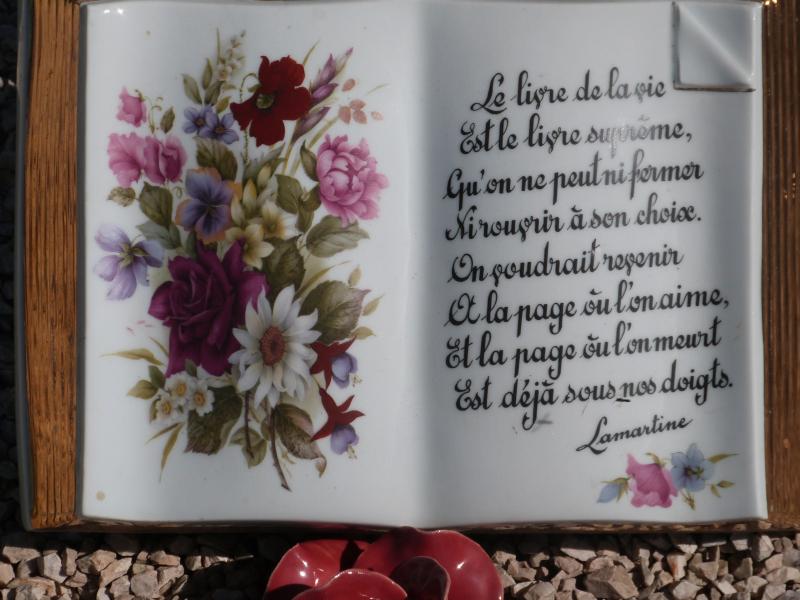 Le livre de la vie
Est le livre suprême,
Qu'on ne peut ni fermer
Ni rouvrir à son choix.
On voudrait revenir
A la page où l'on aime,
Et la page où l'on meurt
Est déjà sous nos doigts.
Lamartine